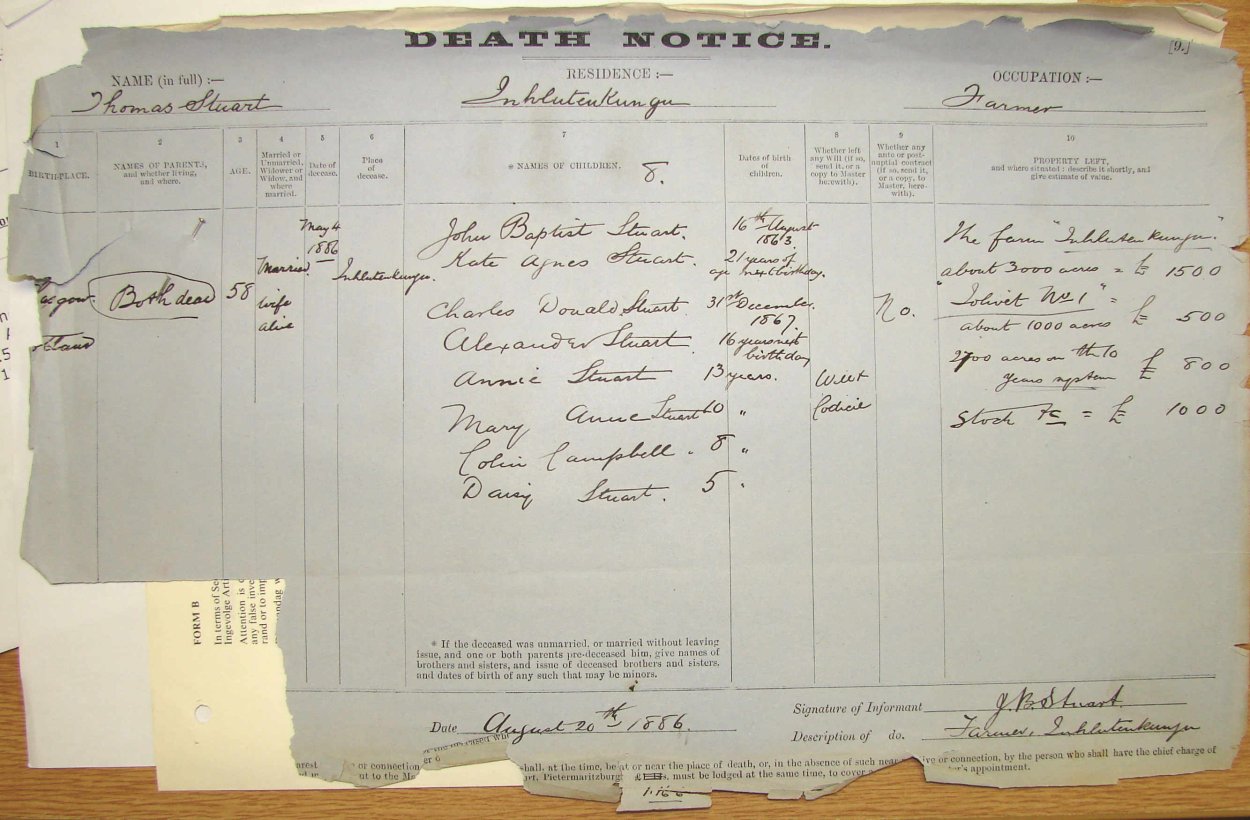 DEATH NOTICE.
[9.]
NAME (in full) :—
Thomas Stuart
RESIDENCE :—
Inhlutenkungu
OCCUPATION :—
Farmer
1
BIRTH-PLACE.
2
NAMES OF PARENTS,
and whether living,
and where.
3
AGE.
4
Married or
Unmarried,
Widower or
Widow, and
where
married.
5
Date of
decease.
6
Place
of
decease.
7
* NAMES OF CHILDREN.
8.
Dates of birth
of
children.
8
Whether left
any Will (if so,
send it, or a
copy to Master
herewith).
9
Whether any
ante or post-
nuptial contract
(if so, send it,
or a copy, to
Master, here-
with).
10
PROPERTY LEFT,
and where situated : describe it shortly, and
give estimate of value.
gow
tland
Both dead
58
Married
wife
alive
May 4
1886
Inhlutenkungu.
John Baptist Stuart. 16th August
1863.
Kate Agnes Stuart. 21 years of
age next birthday.
Charles Donald Stuart. 31st December
1867.
Alexander Stuart. 16 years next
birthday
Annie Stuart 13 years.
Mary Anne Stuart 10 "
Colin Campbell " 8 "
Daisy Stuart. 5 "
Will
Codicil
No.
The farm "Inhlutenkungu."
about 3000 acres = £ 1500
"Jolivet No 1" =
about 1000 acres £ 500
2700 acres on the 10
years system £ 800
Stock &c = £ 1000
* If the deceased was unmarried, or married without leaving
issue, and one or both parents pre-deceased him, give names of
brothers and sisters, and issue of deceased brothers and sisters,
and dates of birth of any such that may be minors.
Date August 20th 1886.
Signature of Informant J. B. Stuart.
Description of do. Farmer, Inhlutenkungu
or connection
shall, at the time, be at or near the place of death, or, in the absence of such near
ive or connection, by the person who shall have the chief charge of
out to the Ma
rt, Pietermaritzburg
must be lodged at the same time, to cover
's appointment.
FORM B
In terms of Se
Ingevolge Arti
Attention is
any false inve
rand or to imp